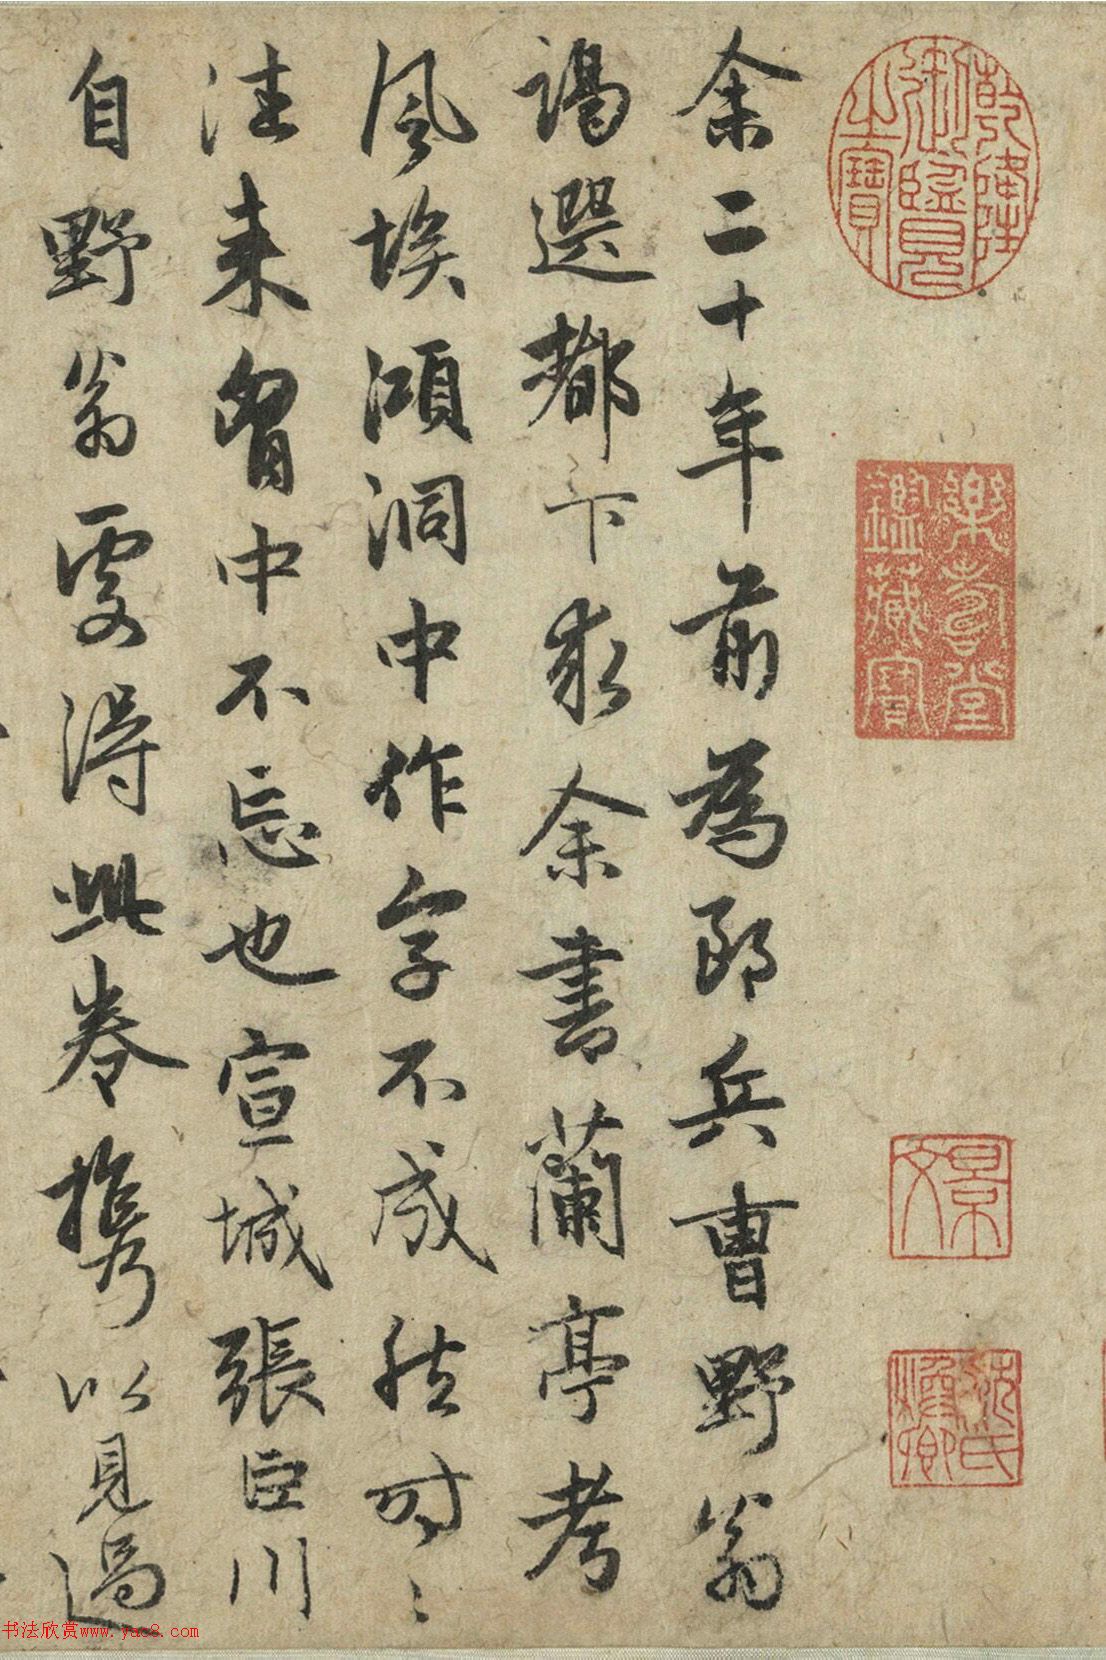 乾隆御覽之寶
樂壽堂鑑藏寶
景文
沈氏
余二十年前為郎兵曹野翁
謁選都下求余書蘭亭考
風埃澒洞中作字不成然時〻
往来胷中不忘也宣城張臣川
自野翁處得此卷攜以見過
书法欣赏www.yac8.com